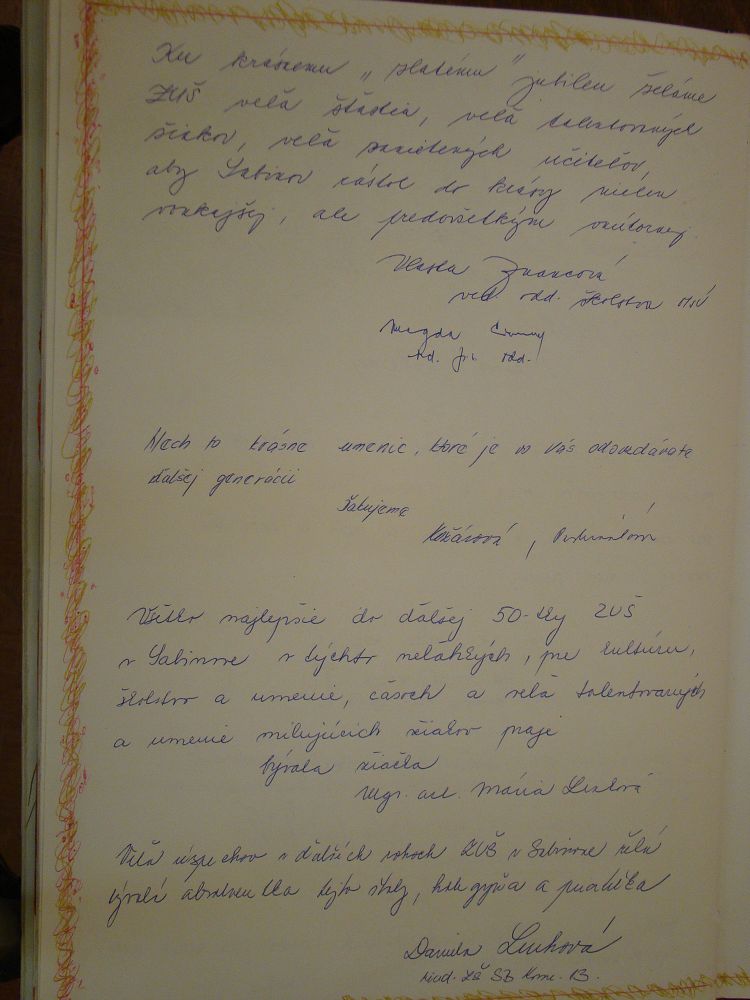 Ku krásnemu „zlatému" jubileu želáme
ZUŠ veľa šťastia, veľa talentovaných
žiakov, veľa zanietených učiteľov,
aby Sabinov rástol do krásy nielen
vonkajšej, ale predovšetkým vnútornej.
Vlasta
ved. odd. školstva MsÚ
Magda
odd.
Nech to krásne umenie, ktoré je vo Vás odovzdávate
ďalšej generácii
Ďakujeme
Všetko najlepšie do ďalšej 50-tky ZUŠ
v Sabinove v týchto neľahkých, pre kultúru,
školstvo a umenie, časoch a veľa talentovaných
a umenie milujúcich žiakov praje
bývala žiačka
Mgr. art. Mária
Veľa úspechov v ďalších rokoch ZUŠ v Sabinove želá
bývalá absolventka tejto školy, kolegyňa a
Daniela
riad. ZŠ SB Kom. 13.